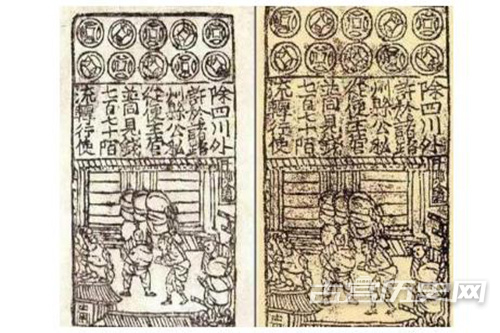 除四川外
許於諸路
州縣公私
從便主管
並同見錢
七百七十陌
流轉行使
除四川外
許於諸路
州縣公私
從便主管
並同見錢
七百七十陌
流轉行使
历史网